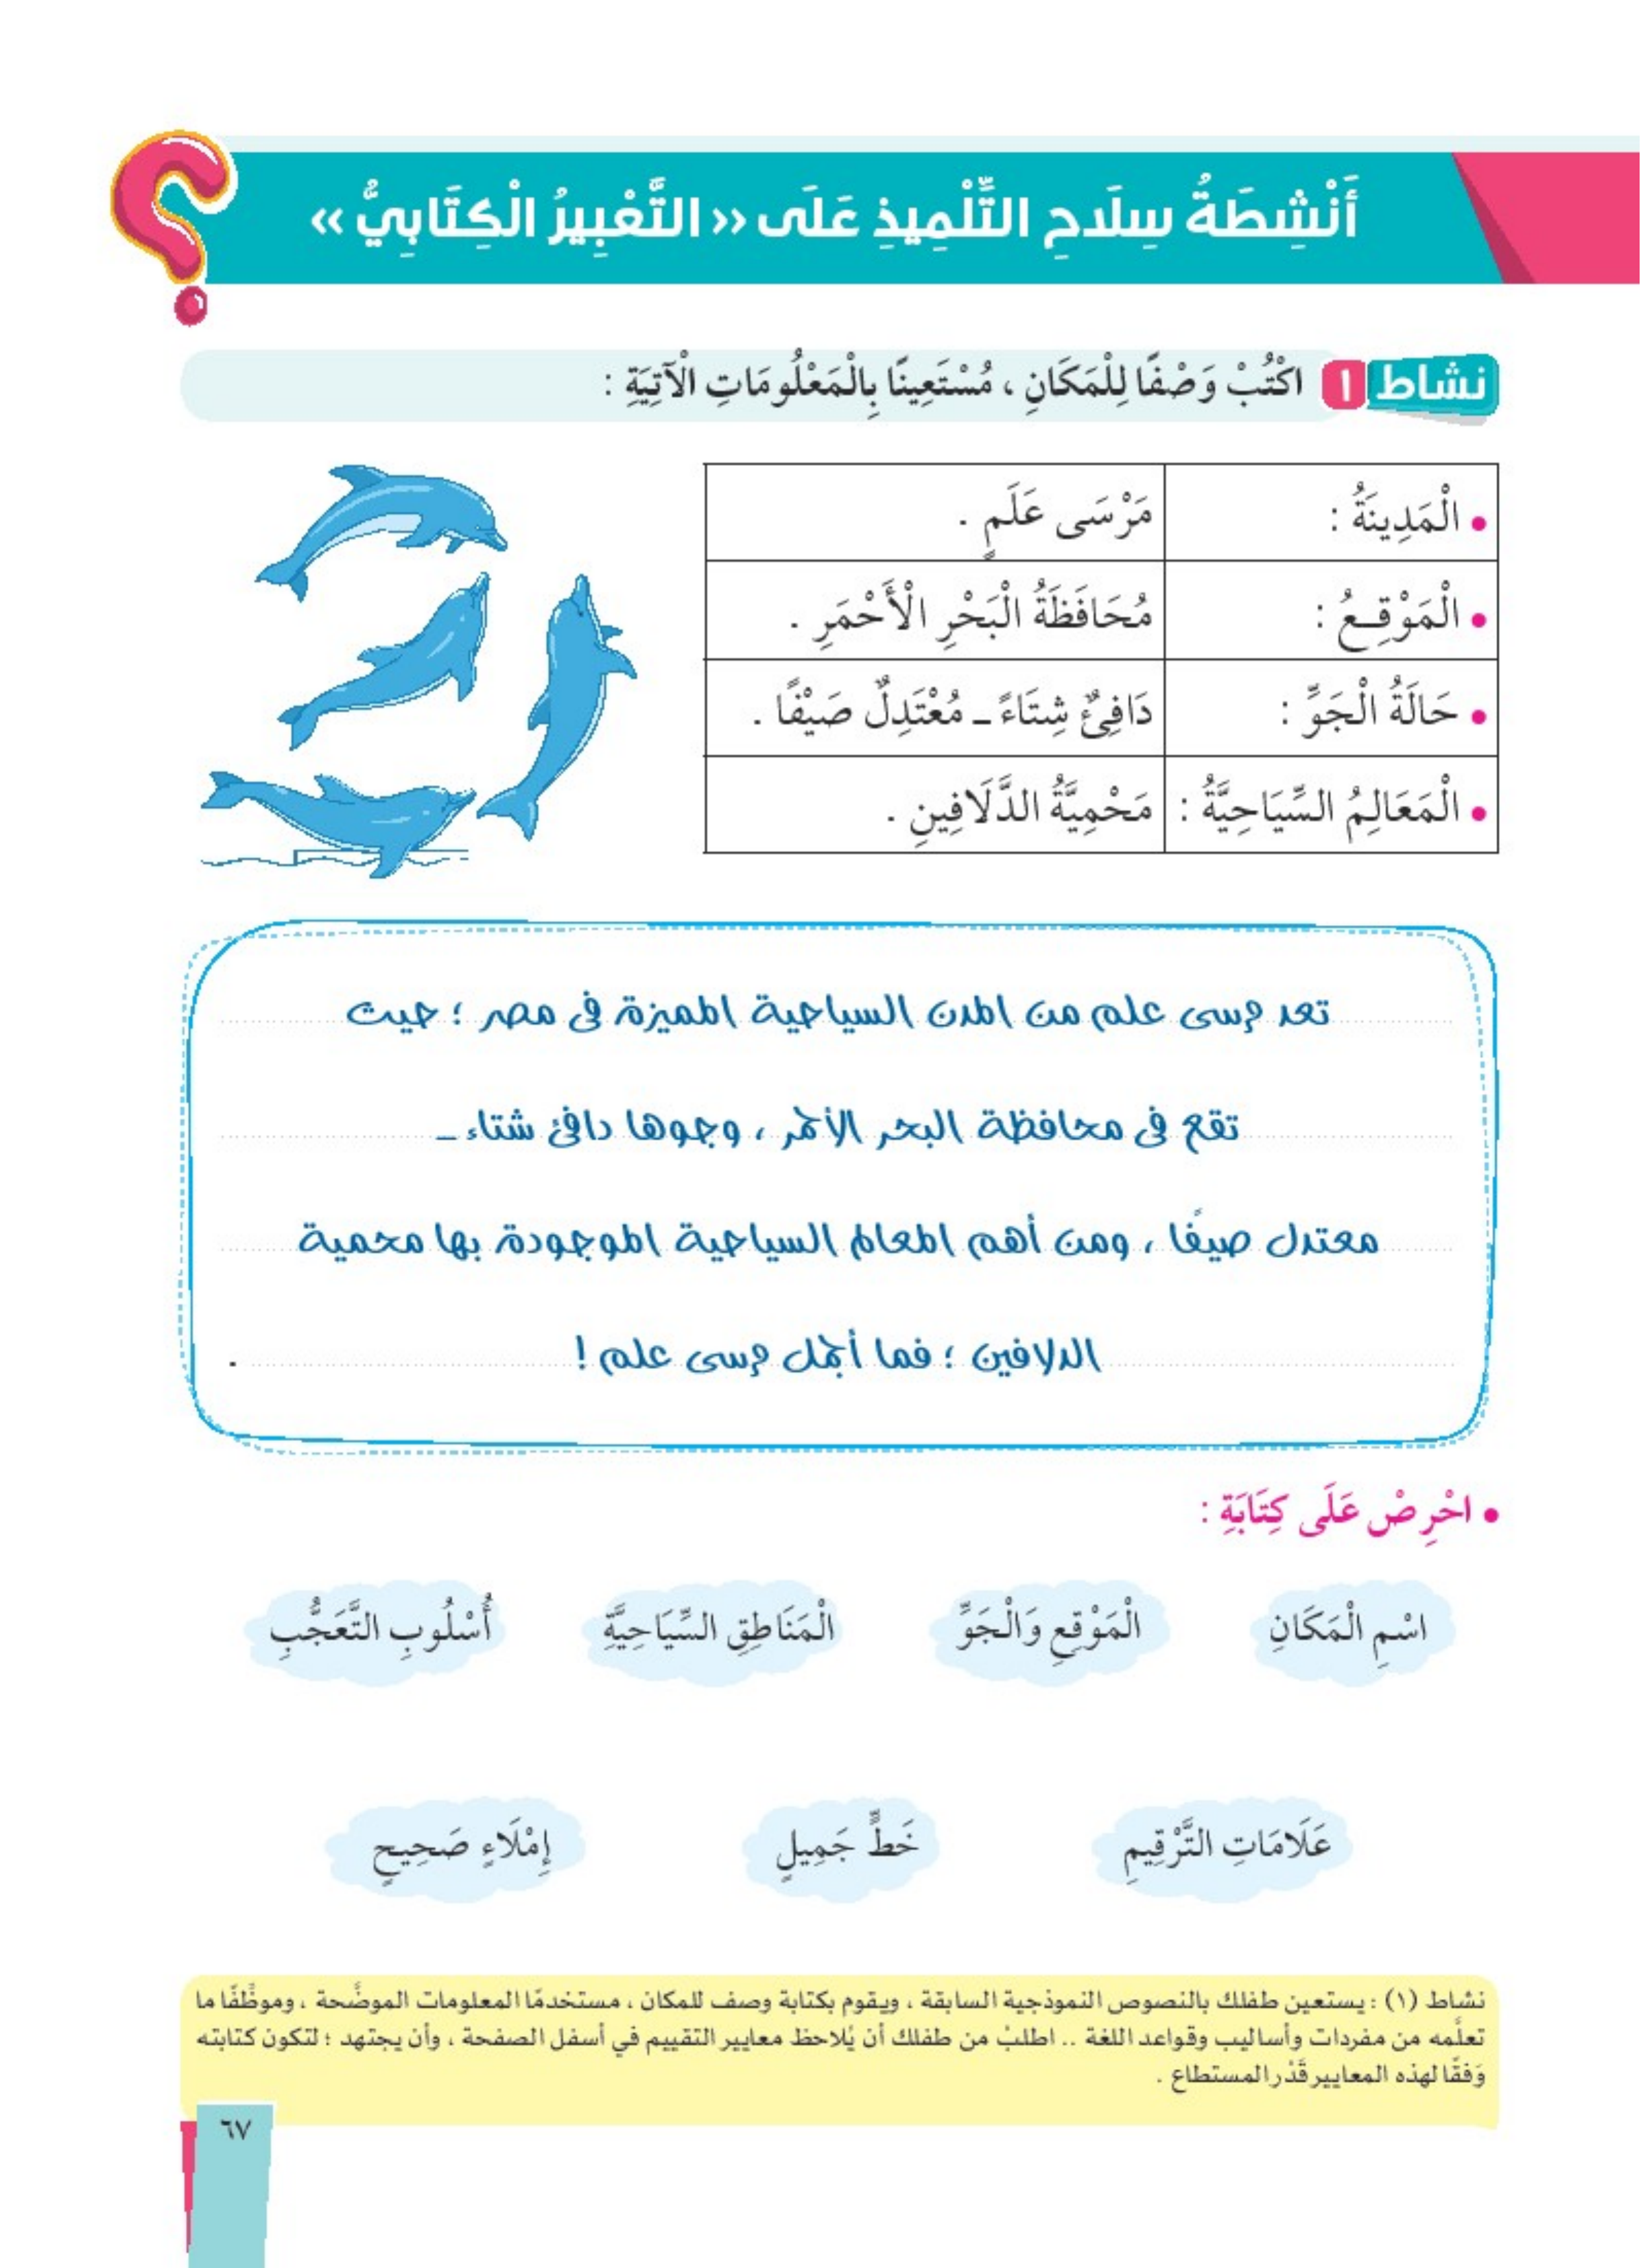 أَنْشِطَةُ سِلَاحِ التِّلْمِيذِ عَلَى « التَّعْبِيرُ الْكِتَابِيُّ »
نشاط ١ اكْتُبْ وَصْفًا لِلْمَكَانِ ، مُسْتَعِينًا بِالْمَعْلُومَاتِ الْآتِيَةِ :
• الْمَدِينَةُ : مَرْسَى عَلَمٍ .
• الْمَوْقِعُ : مُحَافَظَةُ الْبَحْرِ الْأَحْمَرِ .
• حَالَةُ الْجَوِّ : دَافِئٌ شِتَاءً ـ مُعْتَدِلٌ صَيْفًا .
• الْمَعَالِمُ السِّيَاحِيَّةُ : مَحْمِيَّةُ الدَّلَافِينِ .
تعد مرسى علم من المدن السياحية المميزة فى مصر ؛ حيث
تقع فى محافظة البحر الأحمر ، وجوها دافئ شتاء ـ
معتدل صيفًا ، ومن أهم المعالم السياحية الموجودة بها محمية
الدلافين ؛ فما أجمل مرسى علم ! .
• احْرِصْ عَلَى كِتَابَةِ :
اسْمِ الْمَكَانِ الْمَوْقِعِ وَالْجَوِّ الْمَنَاطِقِ السِّيَاحِيَّةِ أُسْلُوبِ التَّعَجُّبِ
عَلَامَاتِ التَّرْقِيمِ خَطٍّ جَمِيلٍ إِمْلَاءٍ صَحِيحٍ
نشاط (١) : يستعين طفلك بالنصوص النموذجية السابقة ، ويقوم بكتابة وصف للمكان ، مستخدمًا المعلومات الموضَّحة ، وموظِّفًا ما
تعلَّمه من مفردات وأساليب وقواعد اللغة .. اطلبْ من طفلك أن يُلاحظ معايير التقييم في أسفل الصفحة ، وأن يجتهد ؛ لتكون كتابته
وَفقًا لهذه المعايير قَدْر المستطاع .
٦٧